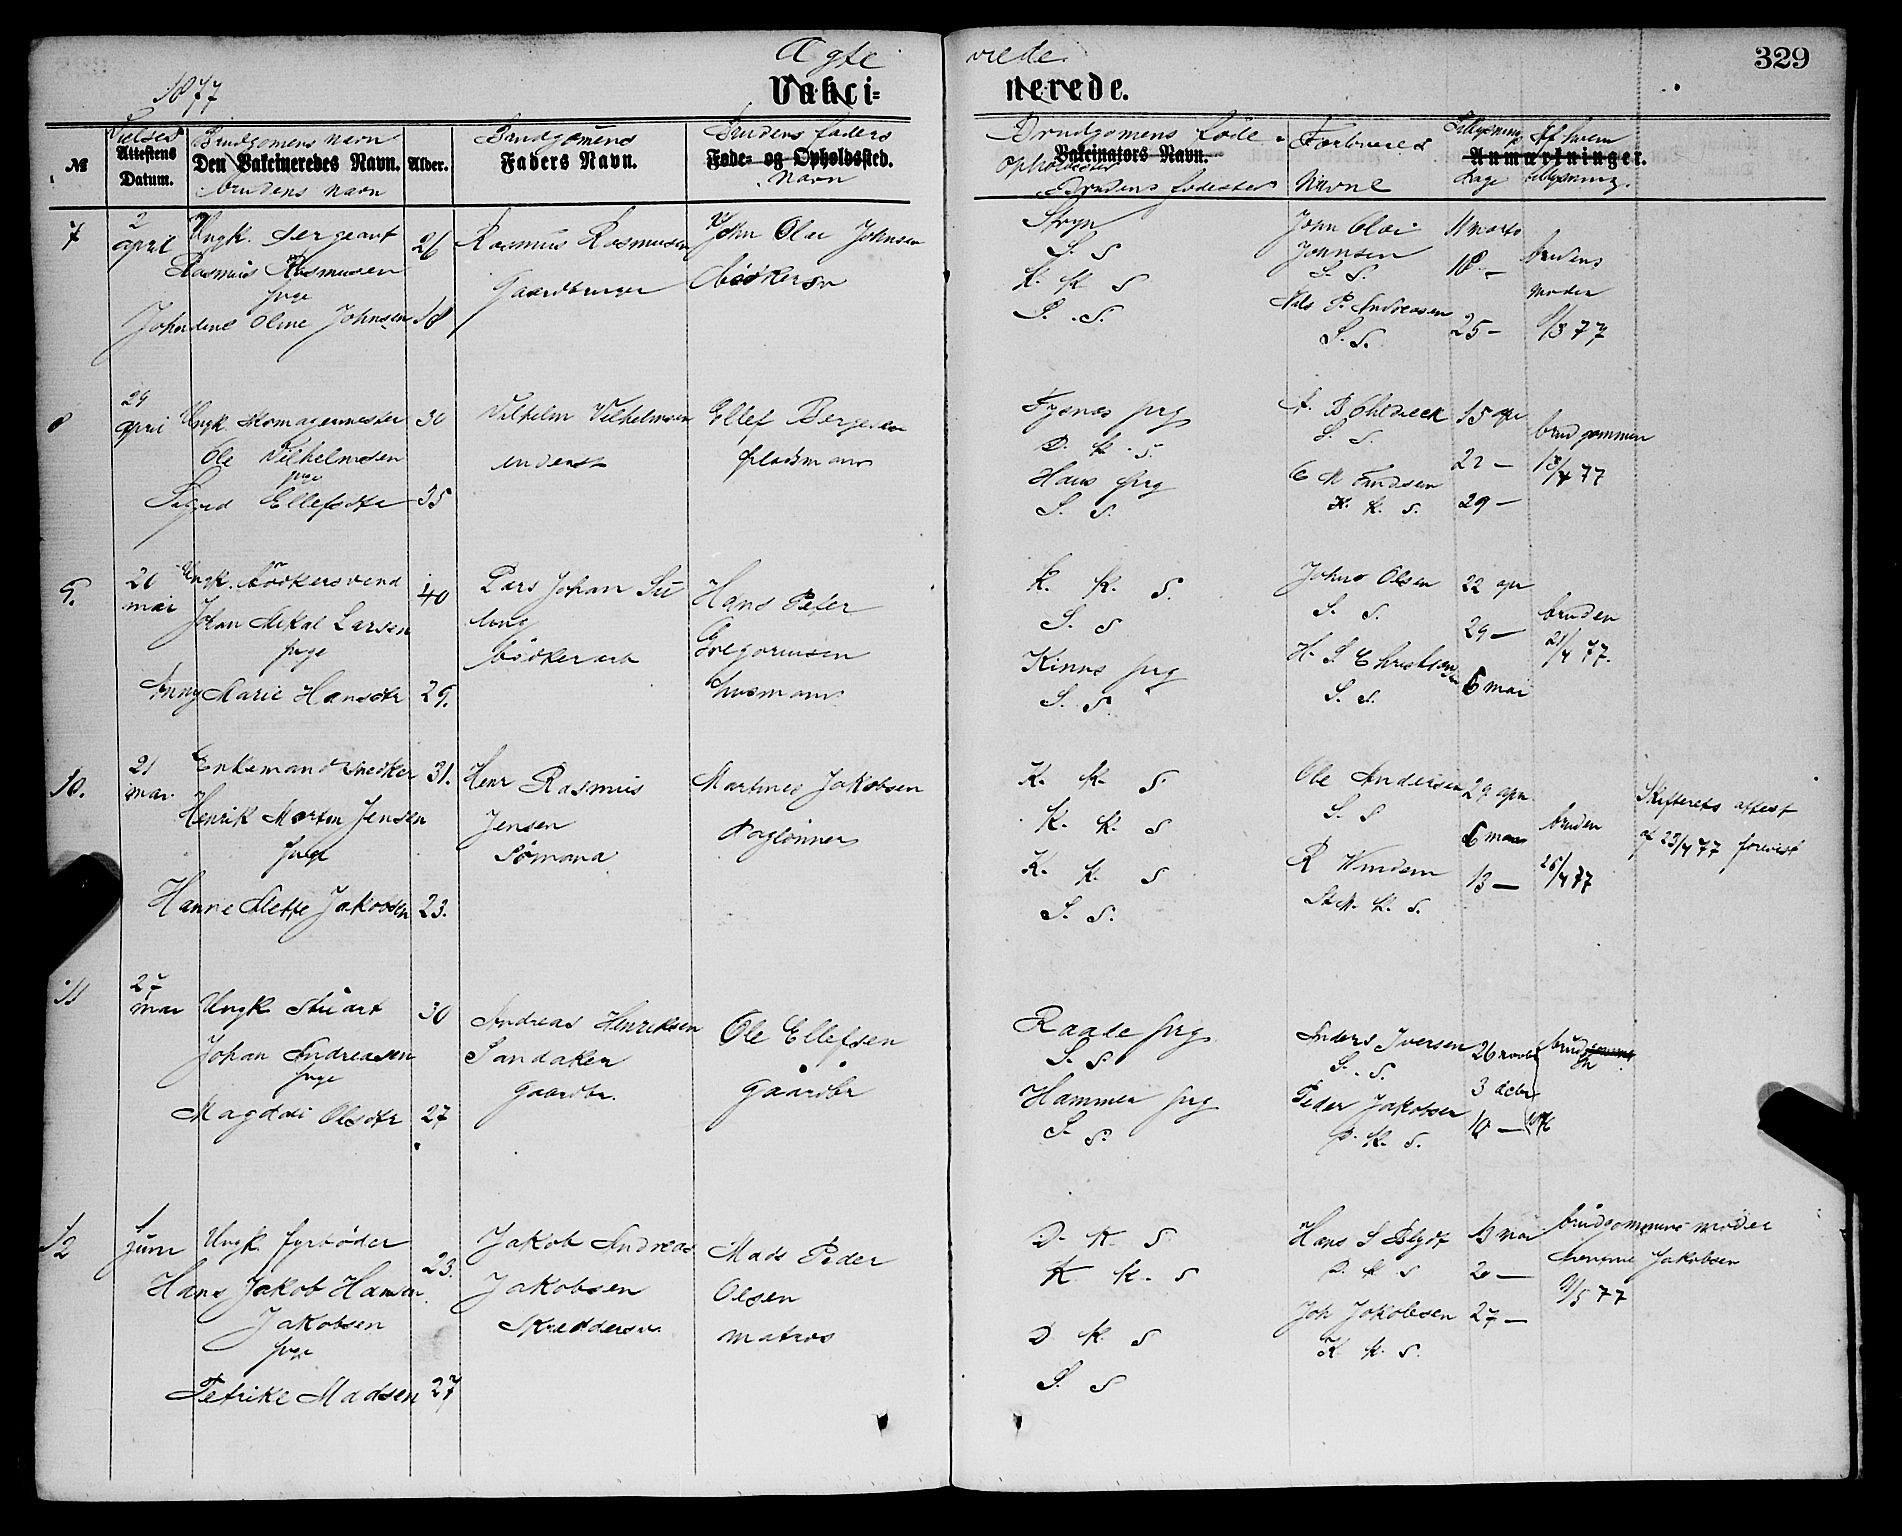 1877
Ægte
viede
329
Vakci=
nerede.
Vielses
Attestens
Datum.
№
Brudgomens navn
Den Vakcineredes Navn.
brudens navn
Alder.
Brudgomens
Faders Navn.
Brudens faders
Føde= og Opholdssted.
Navn
Brudgomens føde-
Vakcinators Navn.
Opholdssted
Brudens fødested
Forloveres
Navne
Anmærkninger.
Dage
Af hvem
7
2
april
Ungk. Sergeant
Rasmus Rasmusen
pige
Johndine Oline Johnsen
26
18
Rasmus Rasmusen
Gaardbruger
John Olai Johnsen
Bødkersv
Stryn
S. S
K. K S
S. S.
John Olai
Johnsen
S. S.
Nils P. Andreasen
S. S.
11 marts
18 -
25 -
brudens
moder
/3 77
8
29
april
Ungk. Skomagermester
Ole Vilhelmsen
pige
Sigrid Ellefsdtr
30
35
Vilhelm Vilhelmsen
Ellef Bergesen
pladsmann
prg
D. K. S.
Haus prg
S. S.
S. S.
C M
K. K. S.
15 apr
22 -
29 -
brudgommen
13/4 77
9.
20
mai
Ungk. Bødkersvend
Johan Mikal Larsen
pige
Anny Marie Hansdtr
40
29.
Lars Johan
Bødkerarb
Hans Peter
Gregoriusen
husmann
K. K. S.
S. S
Kinns prg
S. S.
Johns Olsen
S. S.
H. S Christensen
S. S.
22 apr
29 -
6 mai
bruden
21/4 77.
10.
21
mai
Enkemand Snedker
Henrik Morten Jensen
pige
Hanne Mette Jakobsen
31.
23.
Henr Rasmus
Jensen
Sømand
Martines Jakobsen
Daglönner
K. K. S
K. K. S
K. K. S
S. S.
Ole Andersen
S. S
R
K. S.
29 apr.
6 mai
13 -
bruden
25/4 77
Skifterets attest
af 23/4 77 forevist
11
27
mai
Ungk Stuart
Johan Andreasen
pige
Magdali Olsdtr
30
27
Andreas Henriksen
Sandaker
Gaardbr.
Ole Ellefsen
Gaardbr
Raade prg.
S. S
Hammer prg
S. S.
Anders Iversen
S. S.
Peder Jakobsen
D. K. S.
26 novbr
3 decbr
10 -
bruden
76
12
1
juni
Ungk. fyrbøder
Hans Jakob Hansen
Jakobsen
pige
Petrike Madsen
23.
27
Jakob Andreas
Jakobsen
Skreddersv.
Mads Peder
Olsen
matros
D. K. S
K K. S
D K. S
S. S
Hans S Blydt
D. K S
Joh Jakobsen
K K. S.
13 mai
20 -
27 -
brudgommens moder
Jakobsen
9/5 77